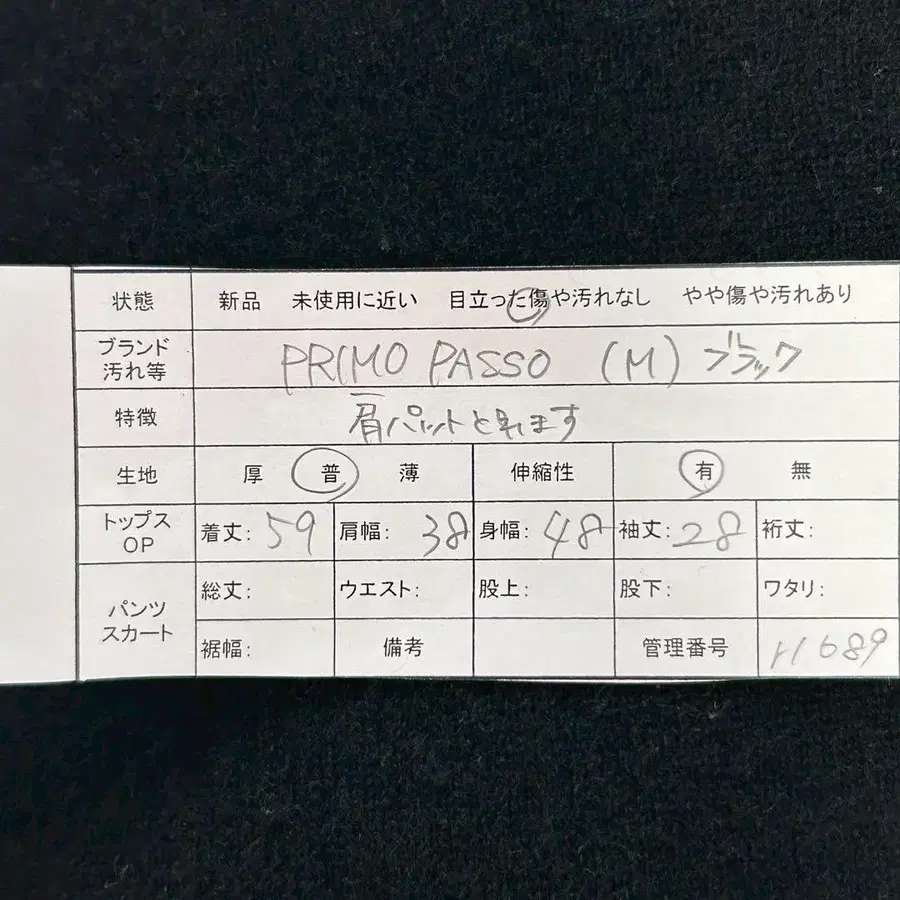 状態 新品 未使用に近い 目立った傷や汚れなし やや傷や汚れあり
ブランド
汚れ等
PRIMO PASSO (M) ブラック
特徴 肩パットとれます
生地 厚 普 薄 伸縮性 有 無
トップス
OP
着丈: 59 肩幅: 38 身幅: 48 袖丈: 28 裄丈:
パンツ
スカート
総丈: ウエスト: 股上: 股下: ワタリ:
裾幅: 備考 管理番号